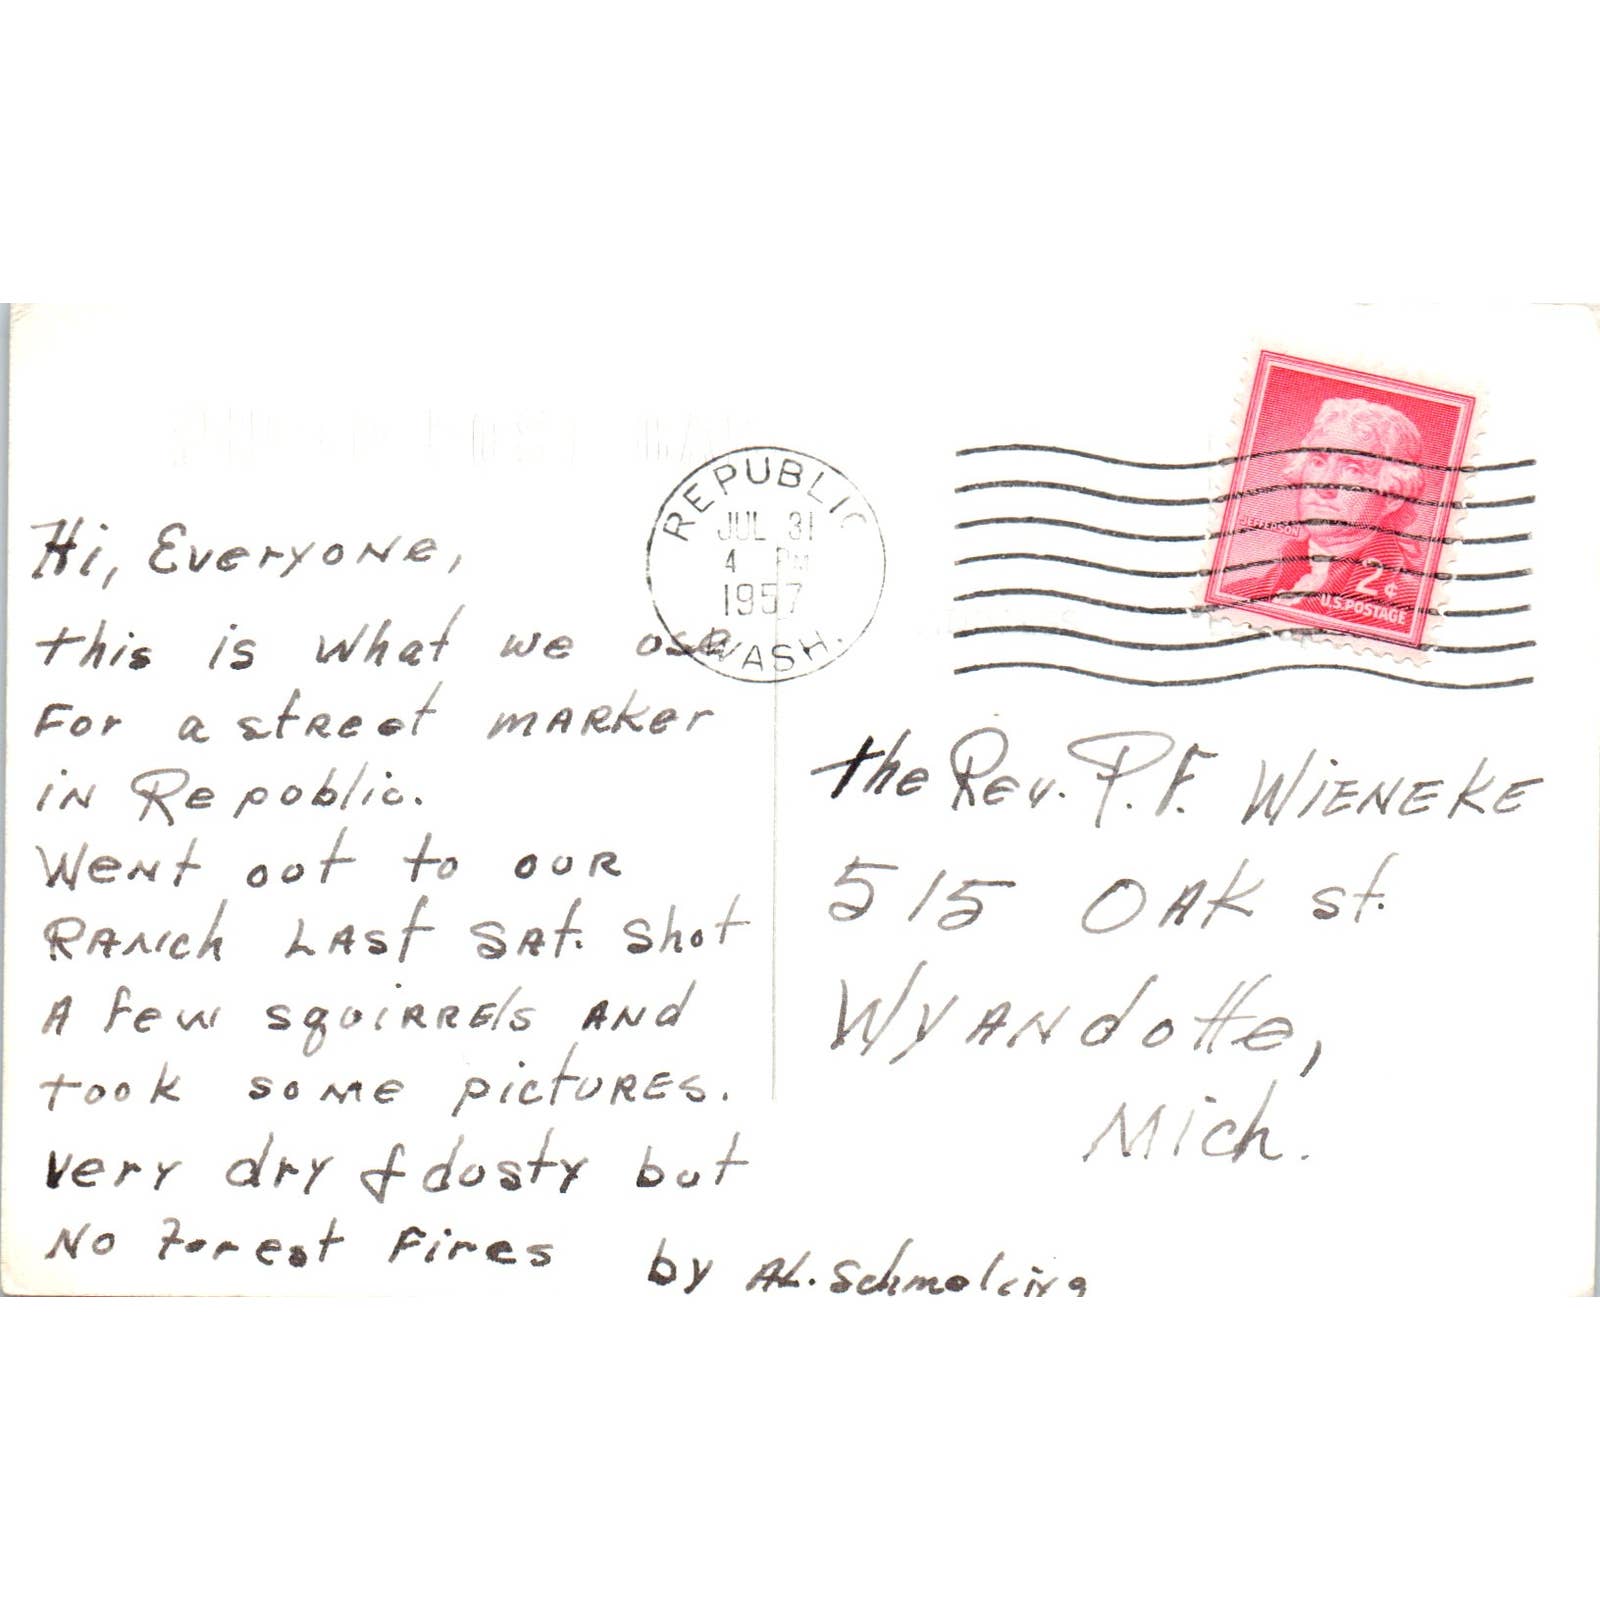 REPUBLIC
JUL 31
4 PM
1957
WASH.
JEFFERSON
2¢
U.S. POSTAGE
Hi, Everyone,
this is what we use
For a street marker
in Republic.
Went out to our
Ranch Last Sat. Shot
A few squirrels and
took some pictures.
Very dry & dusty but
No Forest Fires
by AL. Schmeling
the Rev. P. F. WIENEKE
515 OAK St.
Wyandotte,
Mich.